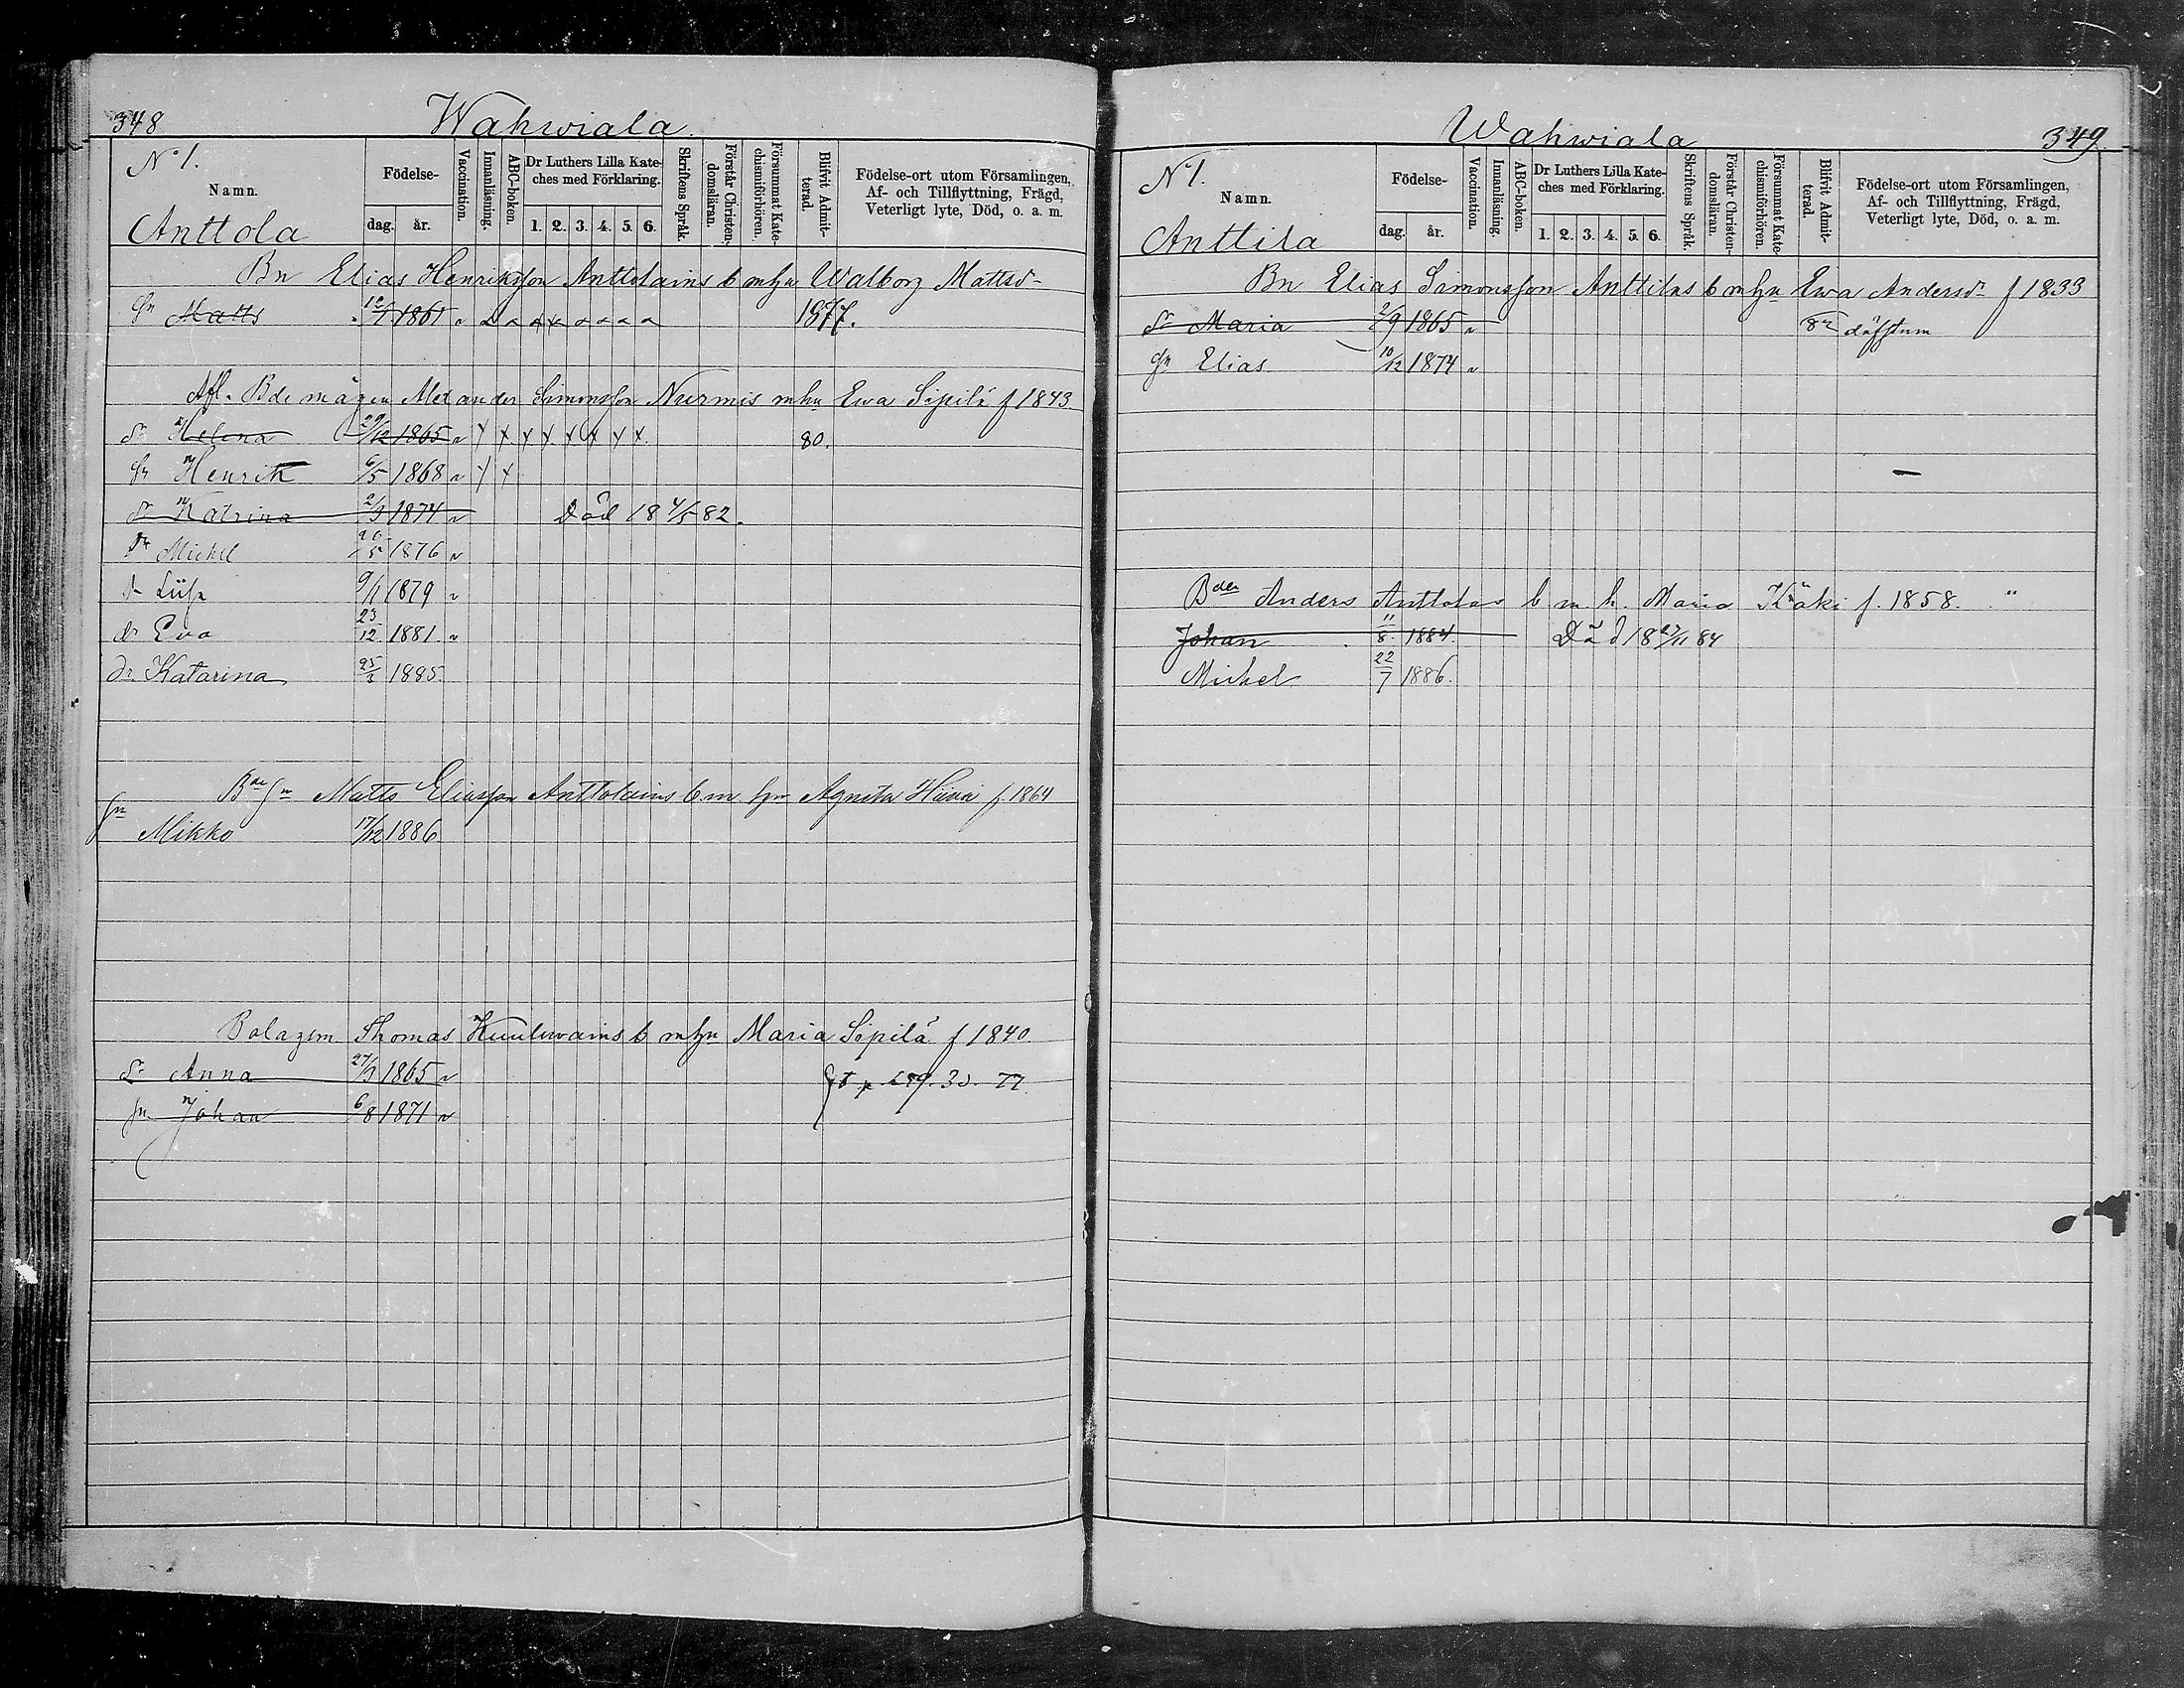 348
Wahwiala
N:o 1.
Namn.
Anttola
Födelse-
dag. år.
Vaccination.
Innanläsning.
ABC-boken.
Dr Luthers Lilla Kate-
ches med Förklaring.
1. 2. 3. 4. 5. 6.
Skriftens Språk.
Förstår Christen-
domsläran.
Försummat Kate-
chismiförhören.
Blifvit Admit-
terad.
Födelse-ort utom Församlingen,
Af- och Tillflyttning, Frägd,
Veterligt lyte, Död, o. a. m.
Bn Elias Henriksson Anttolains b mhn Walborg Mattsd:r
Sn Matts 12/1 1861 1877.
Afl. Bde mågen Alexander Simonsson Nurmis mhn Ewa Sipilä f 1843
dr Helena 29/12 1865 x x x x x x x x 80.
Sn Henrik 6/5 1868 x x
dr Katrina 2/3 1874 Död 18 4/5 82.
Sn Michel 26/5 1876
dr Liisa 9/1 1879
dr Eva 23/12 1881
dr Katarina 25/3 1885
Bde Sn Matts Eliasson Anttolains b m hn Agneta f. 1864
Sn Mikko 17/12 1886
Bolagsm Thomas Kuulwains b mhn Maria Sipilä f 1840
dr Anna 27/3 1865
Sn Johan 6/8 1871
349
Wahwiala
N:o 1.
Namn.
Anttila
Födelse-
dag. år.
Vaccination.
Innanläsning.
ABC-boken.
Dr Luthers Lilla Kate-
ches med Förklaring.
1. 2. 3. 4. 5. 6.
Skriftens Språk.
Förstår Christen-
domsläran.
Försummat Kate-
chismiförhören.
Blifvit Admit-
terad.
Födelse-ort utom Församlingen,
Af- och Tillflyttning, Frägd,
Veterligt lyte, Död, o. a. m.
Bn Elias Simonsson Anttilas b mhn Ewa Andersd:r f 1833
dr Maria 2/9 1865 döfstum
Sn Elias 10/12 1874
Bden Anders Anttolas b m. h. Maria Käki f. 1858.
Johan 11/8 1884 Död 18 27/11 84
Michel 22/7 1886.